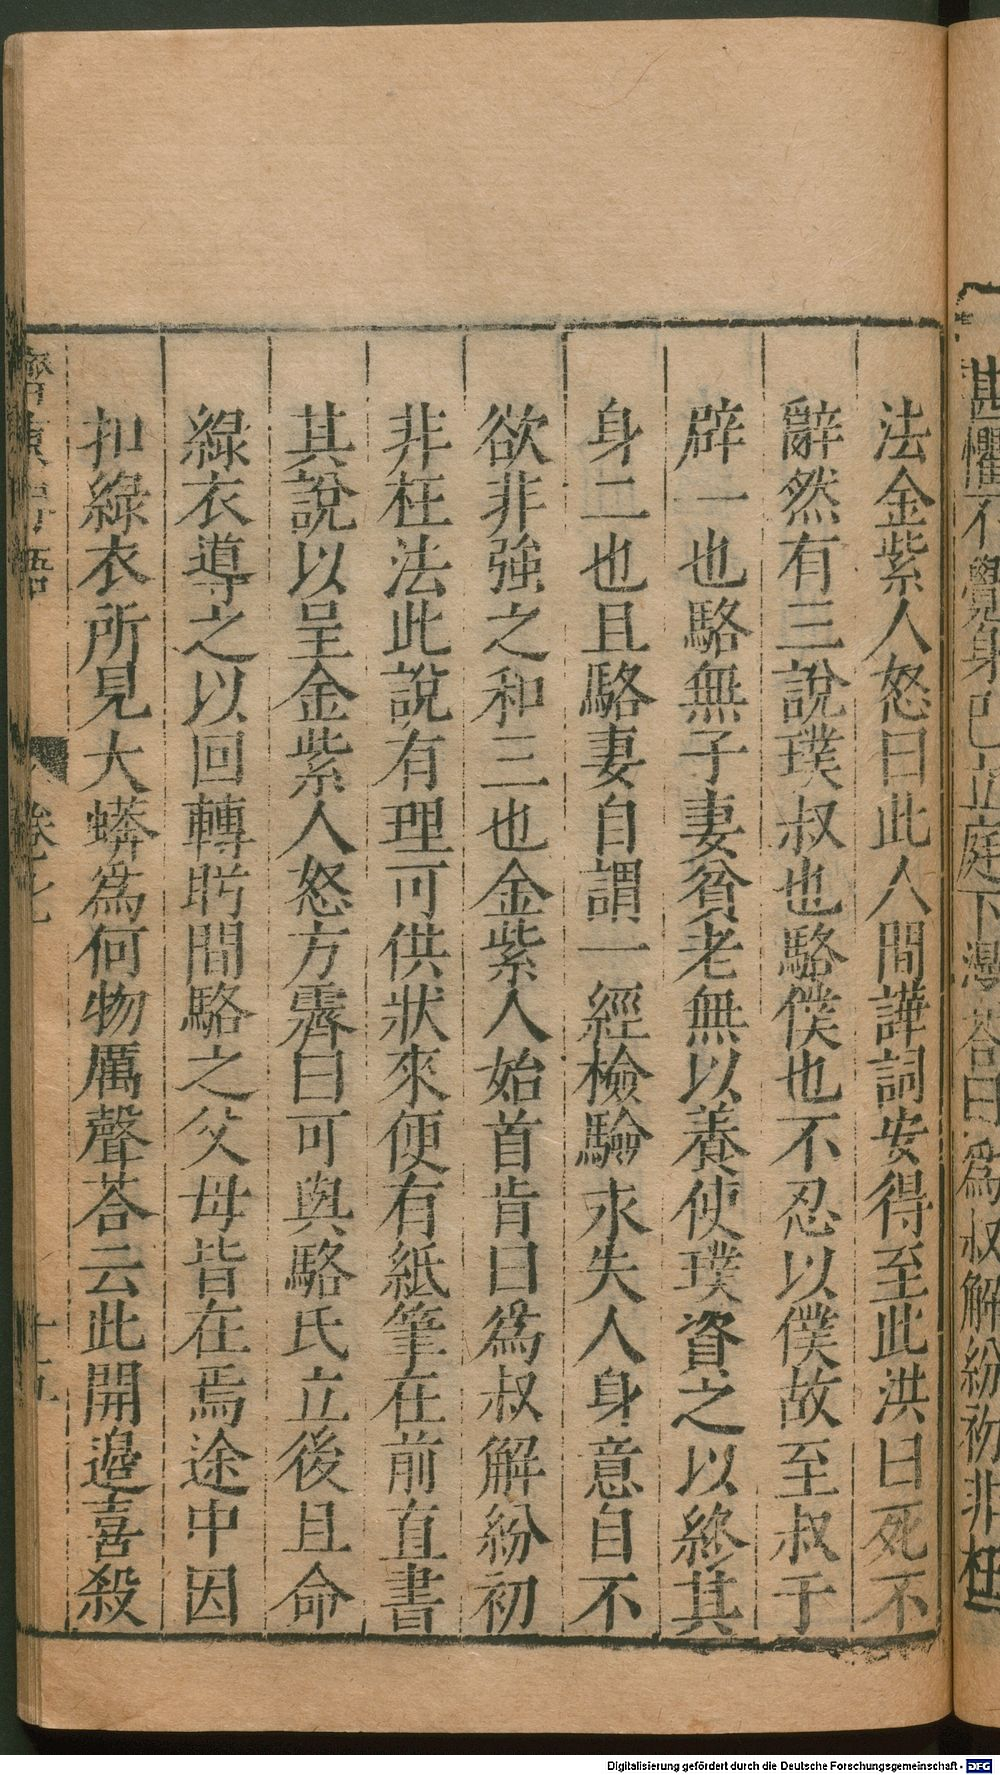 甚懼不覺身已立庭下漫荅曰為叔解紛初非枉
法金紫人怒曰此人間譁詞安得至此洪曰死不
辭然有三說璞叔也駱僕也不忍以僕故至叔于
辟一也駱無子妻貧老無以養使璞資之以終其
身二也且駱妻自謂一經檢驗永失人身意自不
欲非強之和三也金紫人始首肯曰為叔解紛初
非枉法此說有理可供狀來便有紙筆在前直書
其說以呈金紫人怒方霽曰可與駱氏立後且命
綠衣導之以回轉盻間駱之父母皆在焉途中因
扣綠衣所見大蟒為何物厲聲荅云此開邉喜殺
齊東野語 卷七 十五
Digitalisierung gefördert durch die Deutsche Forschungsgemeinschaft - DFG